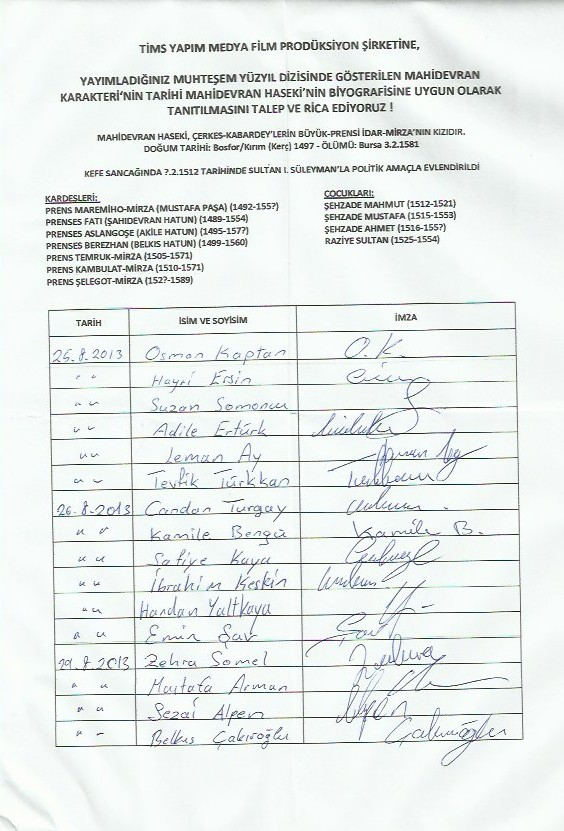 TİMS YAPIM MEDYA FİLM PRODÜKSİYON ŞİRKETİNE,
YAYIMLADIĞINIZ MUHTEŞEM YÜZYIL DİZİSİNDE GÖSTERİLEN MAHİDEVRAN
KARAKTERİ'NİN TARİHİ MAHİDEVRAN HASEKİ'NİN BİYOGRAFİSİNE UYGUN OLARAK
TANITILMASINI TALEP VE RİCA EDİYORUZ !
MAHİDEVRAN HASEKİ, ÇERKES-KABARDEY'LERİN BÜYÜK-PRENSİ İDAR-MİRZA'NIN KIZIDIR.
DOĞUM TARİHİ: Bosfor/Kırım (Kerç) 1497 - ÖLÜMÜ: Bursa 3.2.1581
KEFE SANCAĞINDA ?.2.1512 TARİHİNDE SULTAN I. SÜLEYMAN'LA POLİTİK AMAÇLA EVLENDİRİLDİ
KARDEŞLERİ:
PRENS MAREMİHO-MİRZA (MUSTAFA PAŞA) (1492-155?)
PRENSES FATI (ŞAHIDEVRAN HATUN) (1489-1554)
PRENSES ASLANGOŞE (AKİLE HATUN) (1495-157?)
PRENSES BEREZHAN (BELKIS HATUN) (1499-1560)
PRENS TEMRUK-MİRZA (1505-1571)
PRENS KAMBULAT-MİRZA (1510-1571)
PRENS ŞELEGOT-MİRZA (152?-1589)
ÇOCUKLARI:
ŞEHZADE MAHMUT (1512-1521)
ŞEHZADE MUSTAFA (1515-1553)
ŞEHZADE AHMET (1516-155?)
RAZİYE SULTAN (1525-1554)
TARİH İSİM VE SOYİSİM İMZA
25.8.2013 Osman Kaptan O.K.
" " Hayri Ersin
" " Suzan Somoncu
" " Adile Ertürk
" " Leman Ay
" " Tevfik Türkkan
26.8.2013 Candan Turgay
" " Kamile Bengü Kamile B.
" " Safiye Kaya
" " İbrahim Keskin
" " Handan Yaltkaya
" " Emin Şav Şav
29.8.2013 Zehra Samel Zehra
" " Mustafa Arman
" " Sezai Alpen Alpen
" " Belkıs Çakıroğlu Çakıroğlu